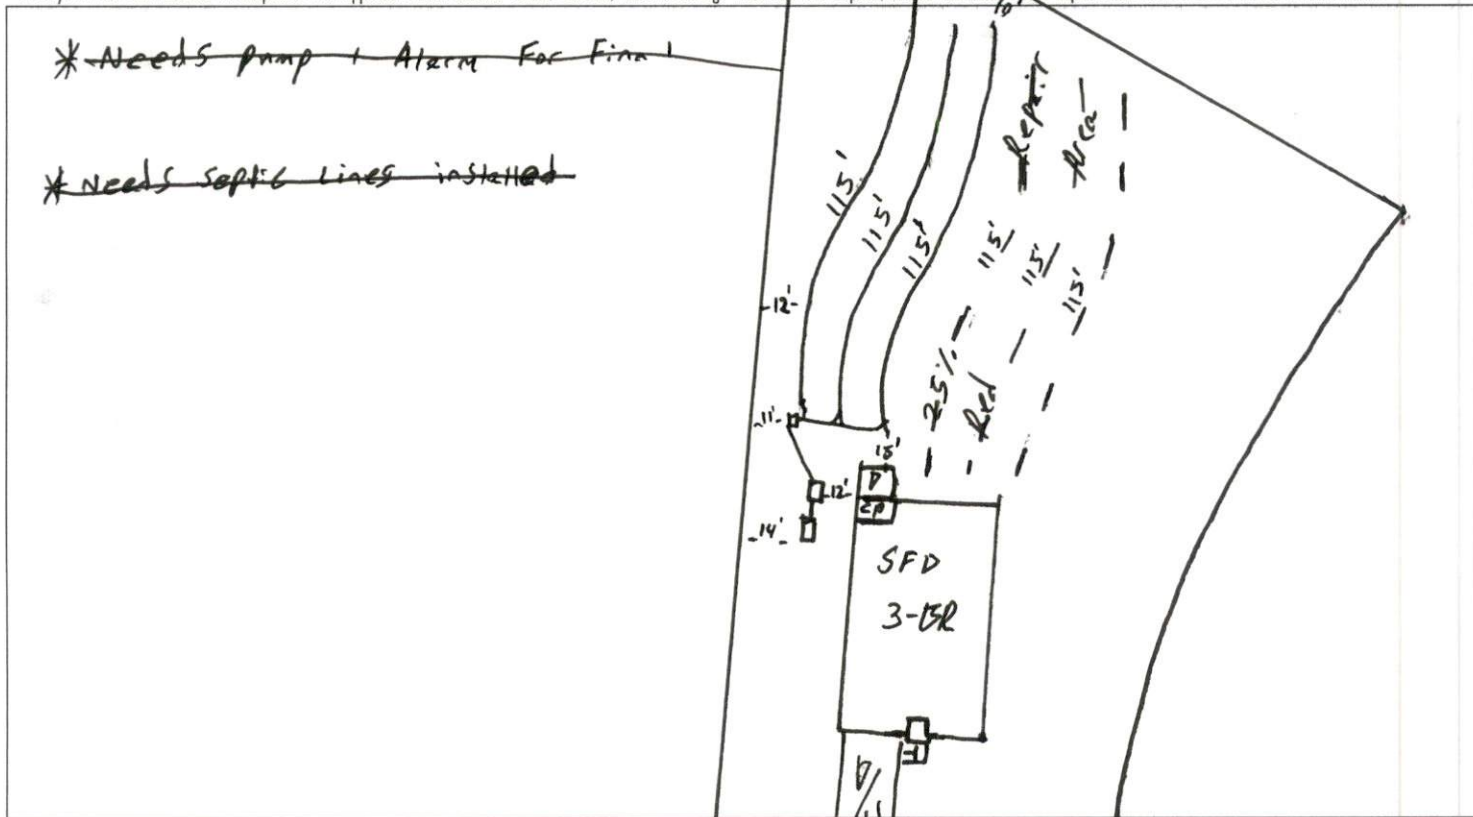 * Needs pump + Alarm For Final
* Needs Septic Lines installed
10'
Repair
Area
115'
115'
115'
115'
115'
115'
-12'-
25%
Red
-11'-
15'
D
-12'-
SP
-14'-
SFD
3-BR
D/